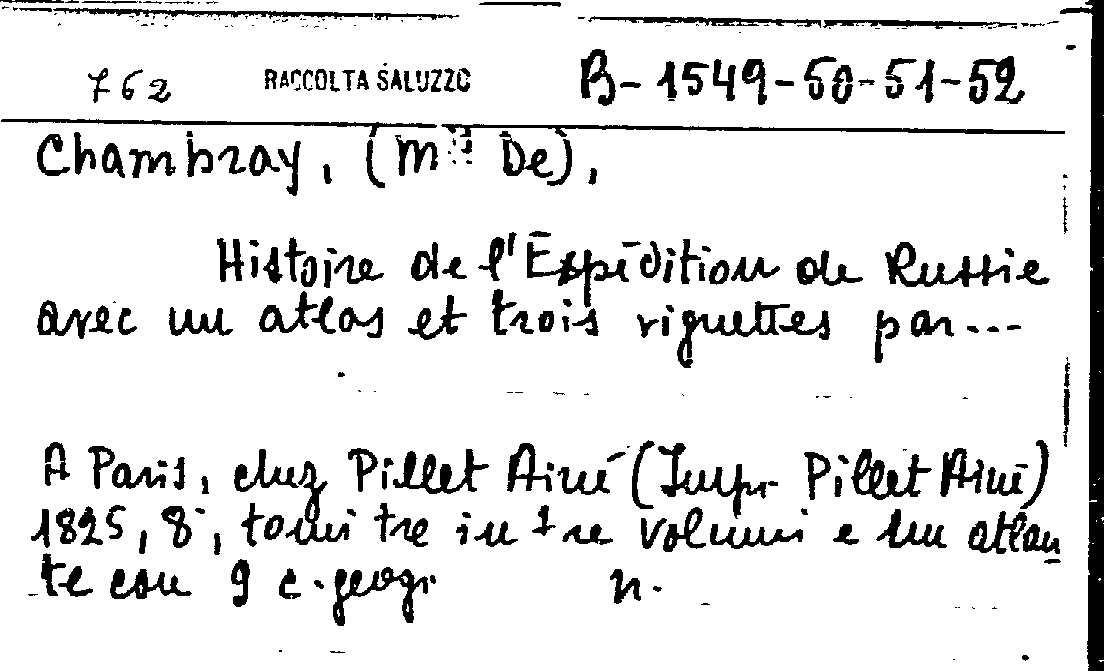 762 RACCOLTA SALUZZO B-1549-50-51-52
Chambray, (M.is De),
Histoire de l'Expédition de Russie
avec un atlas et trois vignettes par...
A Paris, chez Pillet Aîné (Impr. Pillet Aîné)
1825, 8°, tomi tre in tre volumi e un atlan
te con 9 c. geogr. n.